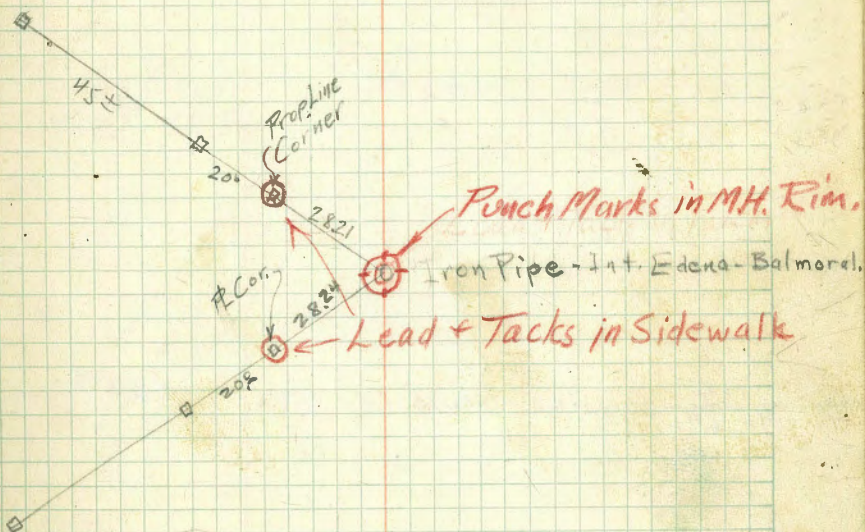 45±
Prop Line
Corner
20.
28.21
Punch Marks in M.H. Rim.
Iron Pipe - Int. Edena - Balmoral.
PL Cor.
28.24
Lead + Tacks in Sidewalk